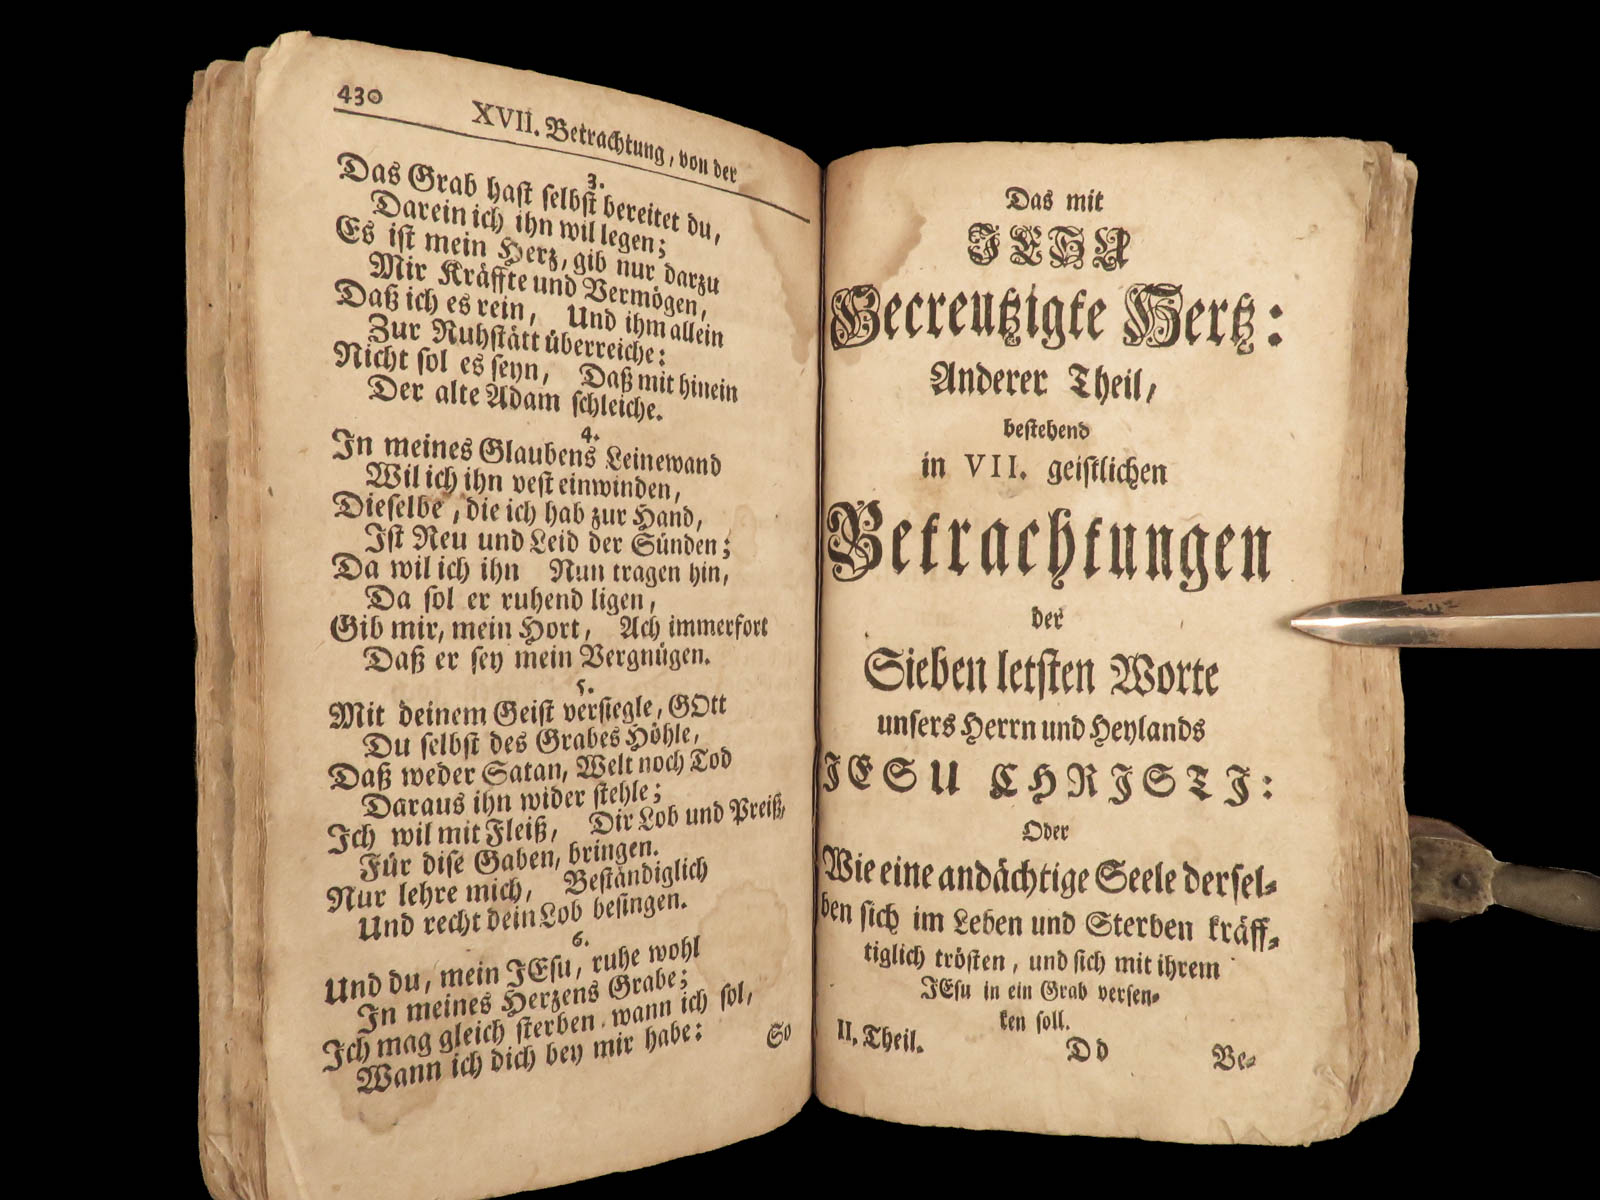 430
XVII. Betrachtung, von der
3.
Das Grab hast selbst bereitet du,
Darein ich ihn wil legen;
Es ist mein Herz, gib nur darzu
Mir Kräffte und Vermögen,
Daß ich es rein, Und ihm allein
Zur Ruhstätt überreiche:
Nicht sol es seyn, Daß mit hinein
Der alte Adam schleiche.
4.
In meines Glaubens Leinewand
Wil ich ihn vest einwinden,
Dieselbe, die ich hab zur Hand,
Ist Reu und Leid der Sünden;
Da wil ich ihn Nun tragen hin,
Da sol er ruhend ligen,
Gib mir, mein Hort, Ach immerfort
Daß er sey mein Vergnügen.
5.
Mit deinem Geist versiegle, GOtt
Du selbst des Grabes Höhle,
Daß weder Satan, Welt noch Tod
Daraus ihn wider stehle;
Ich wil mit Fleiß, Dir Lob und Preiß,
Für dise Gaben, bringen.
Nur lehre mich, Beständiglich
Und recht dein Lob besingen.
6.
Und du, mein JEsu, ruhe wohl
In meines Herzens Grabe;
Ich mag gleich sterben, wann ich sol,
Wann ich dich bey mir habe:
So
Das mit
JESU
Gecreutzigte Hertz:
Anderer Theil,
bestehend
in VII. geistlichen
Betrachtungen
der
Sieben letsten Worte
unsers Herrn und Heylands
JESU CHRISTI:
Oder
Wie eine andächtige Seele dersel-
ben sich im Leben und Sterben kräff-
tiglich trösten, und sich mit ihrem
JEsu in ein Grab versen-
ken soll.
II. Theil.
Dd
Be-